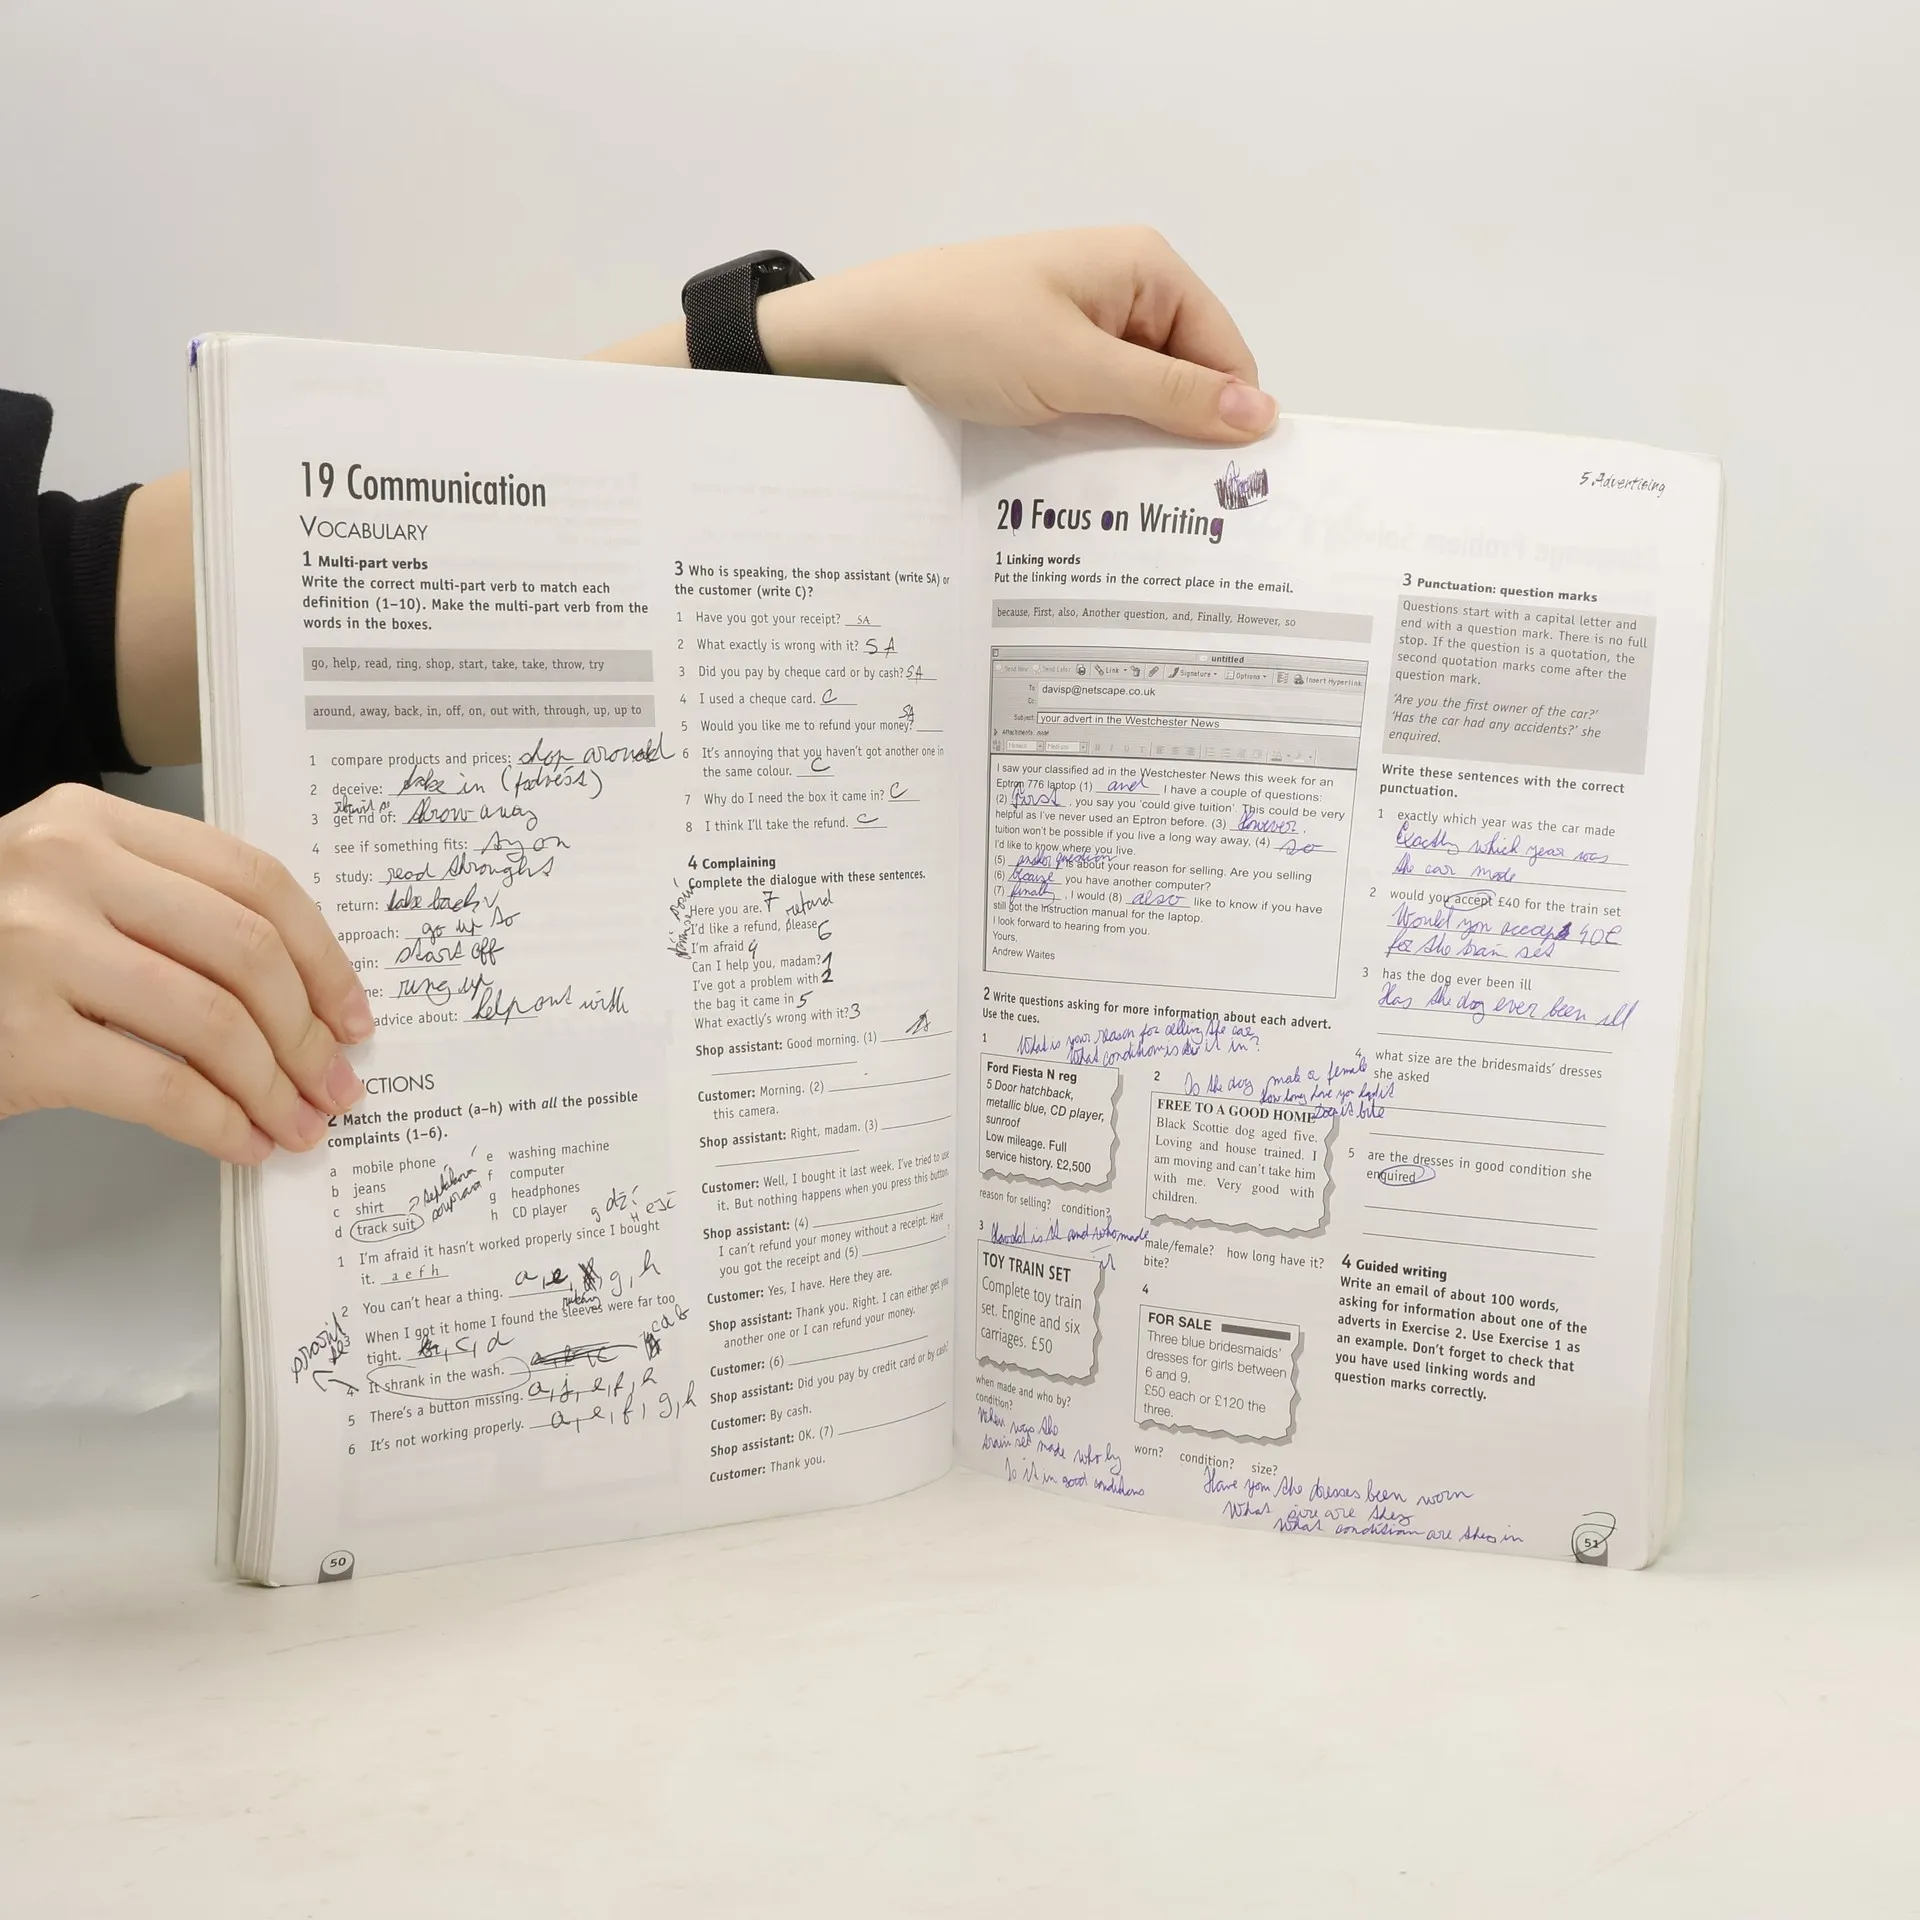 19 Communication
VOCABULARY
1 Multi-part verbs
Write the correct multi-part verb to match each
definition (1–10). Make the multi-part verb from the
words in the boxes.
go, help, read, ring, shop, start, take, take, throw, try
around, away, back, in, off, on, out with, through, up, up to
1 compare products and prices: shop around
2 deceive: take in
3 get rid of: throw away
4 see if something fits: try on
5 study: read throught
return: take back
approach: go up to
gin: start off
ne: ring up
advice about: help out with
CTIONS
2 Match the product (a–h) with all the possible
complaints (1–6).
a mobile phone
b jeans
c shirt
d track suit
e washing machine
f computer
g headphones
h CD player
1 I'm afraid it hasn't worked properly since I bought
it. a e f h
2 You can't hear a thing. a, e, g, h
3 When I got it home I found the sleeves were far too
tight. c, d
4 It shrank in the wash.
5 There's a button missing.
6 It's not working properly. a, e, f, g, h
50
3 Who is speaking, the shop assistant (write SA) or
the customer (write C)?
1 Have you got your receipt? SA
2 What exactly is wrong with it? SA
3 Did you pay by cheque card or by cash? SA
4 I used a cheque card. C
5 Would you like me to refund your money? SA
6 It's annoying that you haven't got another one in
the same colour. C
7 Why do I need the box it came in? C
8 I think I'll take the refund. C
4 Complaining
Complete the dialogue with these sentences.
Here you are. 7
I'd like a refund, please 6
I'm afraid 4
Can I help you, madam? 1
I've got a problem with 2
the bag it came in 5
What exactly's wrong with it? 3
Shop assistant: Good morning. (1)
Customer: Morning. (2)
this camera.
Shop assistant: Right, madam. (3)
Customer: Well, I bought it last week. I've tried to use
it. But nothing happens when you press this button.
Shop assistant: (4)
I can't refund your money without a receipt. Have
you got the receipt and (5)
Customer: Yes, I have. Here they are.
Shop assistant: Thank you. Right. I can either get you
another one or I can refund your money.
Customer: (6)
Shop assistant: Did you pay by credit card or by cash?
Customer: By cash.
Shop assistant: OK. (7)
Customer: Thank you.
5 Advertising
20 Focus on Writing
1 Linking words
Put the linking words in the correct place in the email.
because, First, also, Another question, and, Finally, However, so
untitled
Send Now Send Later Link Signature Options Insert Hyperlink
To: davisp@netscape.co.uk
Cc:
Subject: your advert in the Westchester News
Attachments: none
I saw your classified ad in the Westchester News this week for an
Eptron 776 laptop (1) and I have a couple of questions:
(2) First, you say you 'could give tuition'. This could be very
helpful as I've never used an Eptron before. (3) However,
tuition won't be possible if you live a long way away, (4) so
I'd like to know where you live.
(5) is about your reason for selling. Are you selling
(6) because you have another computer?
(7) finally, I would (8) also like to know if you have
still got the instruction manual for the laptop.
I look forward to hearing from you.
Yours,
Andrew Waites
2 Write questions asking for more information about each advert.
Use the cues.
1 What is your reason for selling the car
What condition is it in?
Ford Fiesta N reg
5 Door hatchback,
metallic blue, CD player,
sunroof
Low mileage. Full
service history. £2,500
reason for selling? condition?
2 Is the dog male or female
how long have you had it
Does it bite
FREE TO A GOOD HOME
Black Scottie dog aged five.
Loving and house trained. I
am moving and can't take him
with me. Very good with
children.
male/female? how long have it?
bite?
3
TOY TRAIN SET
Complete toy train
set. Engine and six
carriages. £50
when made and who by?
condition?
When was the
train set made who by
Is it in good conditions
4
FOR SALE
Three blue bridesmaids'
dresses for girls between
6 and 9.
£50 each or £120 the
three.
worn? condition? size?
Have you the dresses been worn
What size are they
What condition are they in
3 Punctuation: question marks
Questions start with a capital letter and
end with a question mark. There is no full
stop. If the question is a quotation, the
second quotation marks come after the
question mark.
'Are you the first owner of the car?'
'Has the car had any accidents?' she
enquired.
Write these sentences with the correct
punctuation.
1 exactly which year was the car made
Exactly which year was
the car made
2 would you accept £40 for the train set
Would you accept 40£
for the train set
3 has the dog ever been ill
Has the dog ever been ill
4 what size are the bridesmaids' dresses
she asked
5 are the dresses in good condition she
enquired
4 Guided writing
Write an email of about 100 words,
asking for information about one of the
adverts in Exercise 2. Use Exercise 1 as
an example. Don't forget to check that
you have used linking words and
question marks correctly.
51